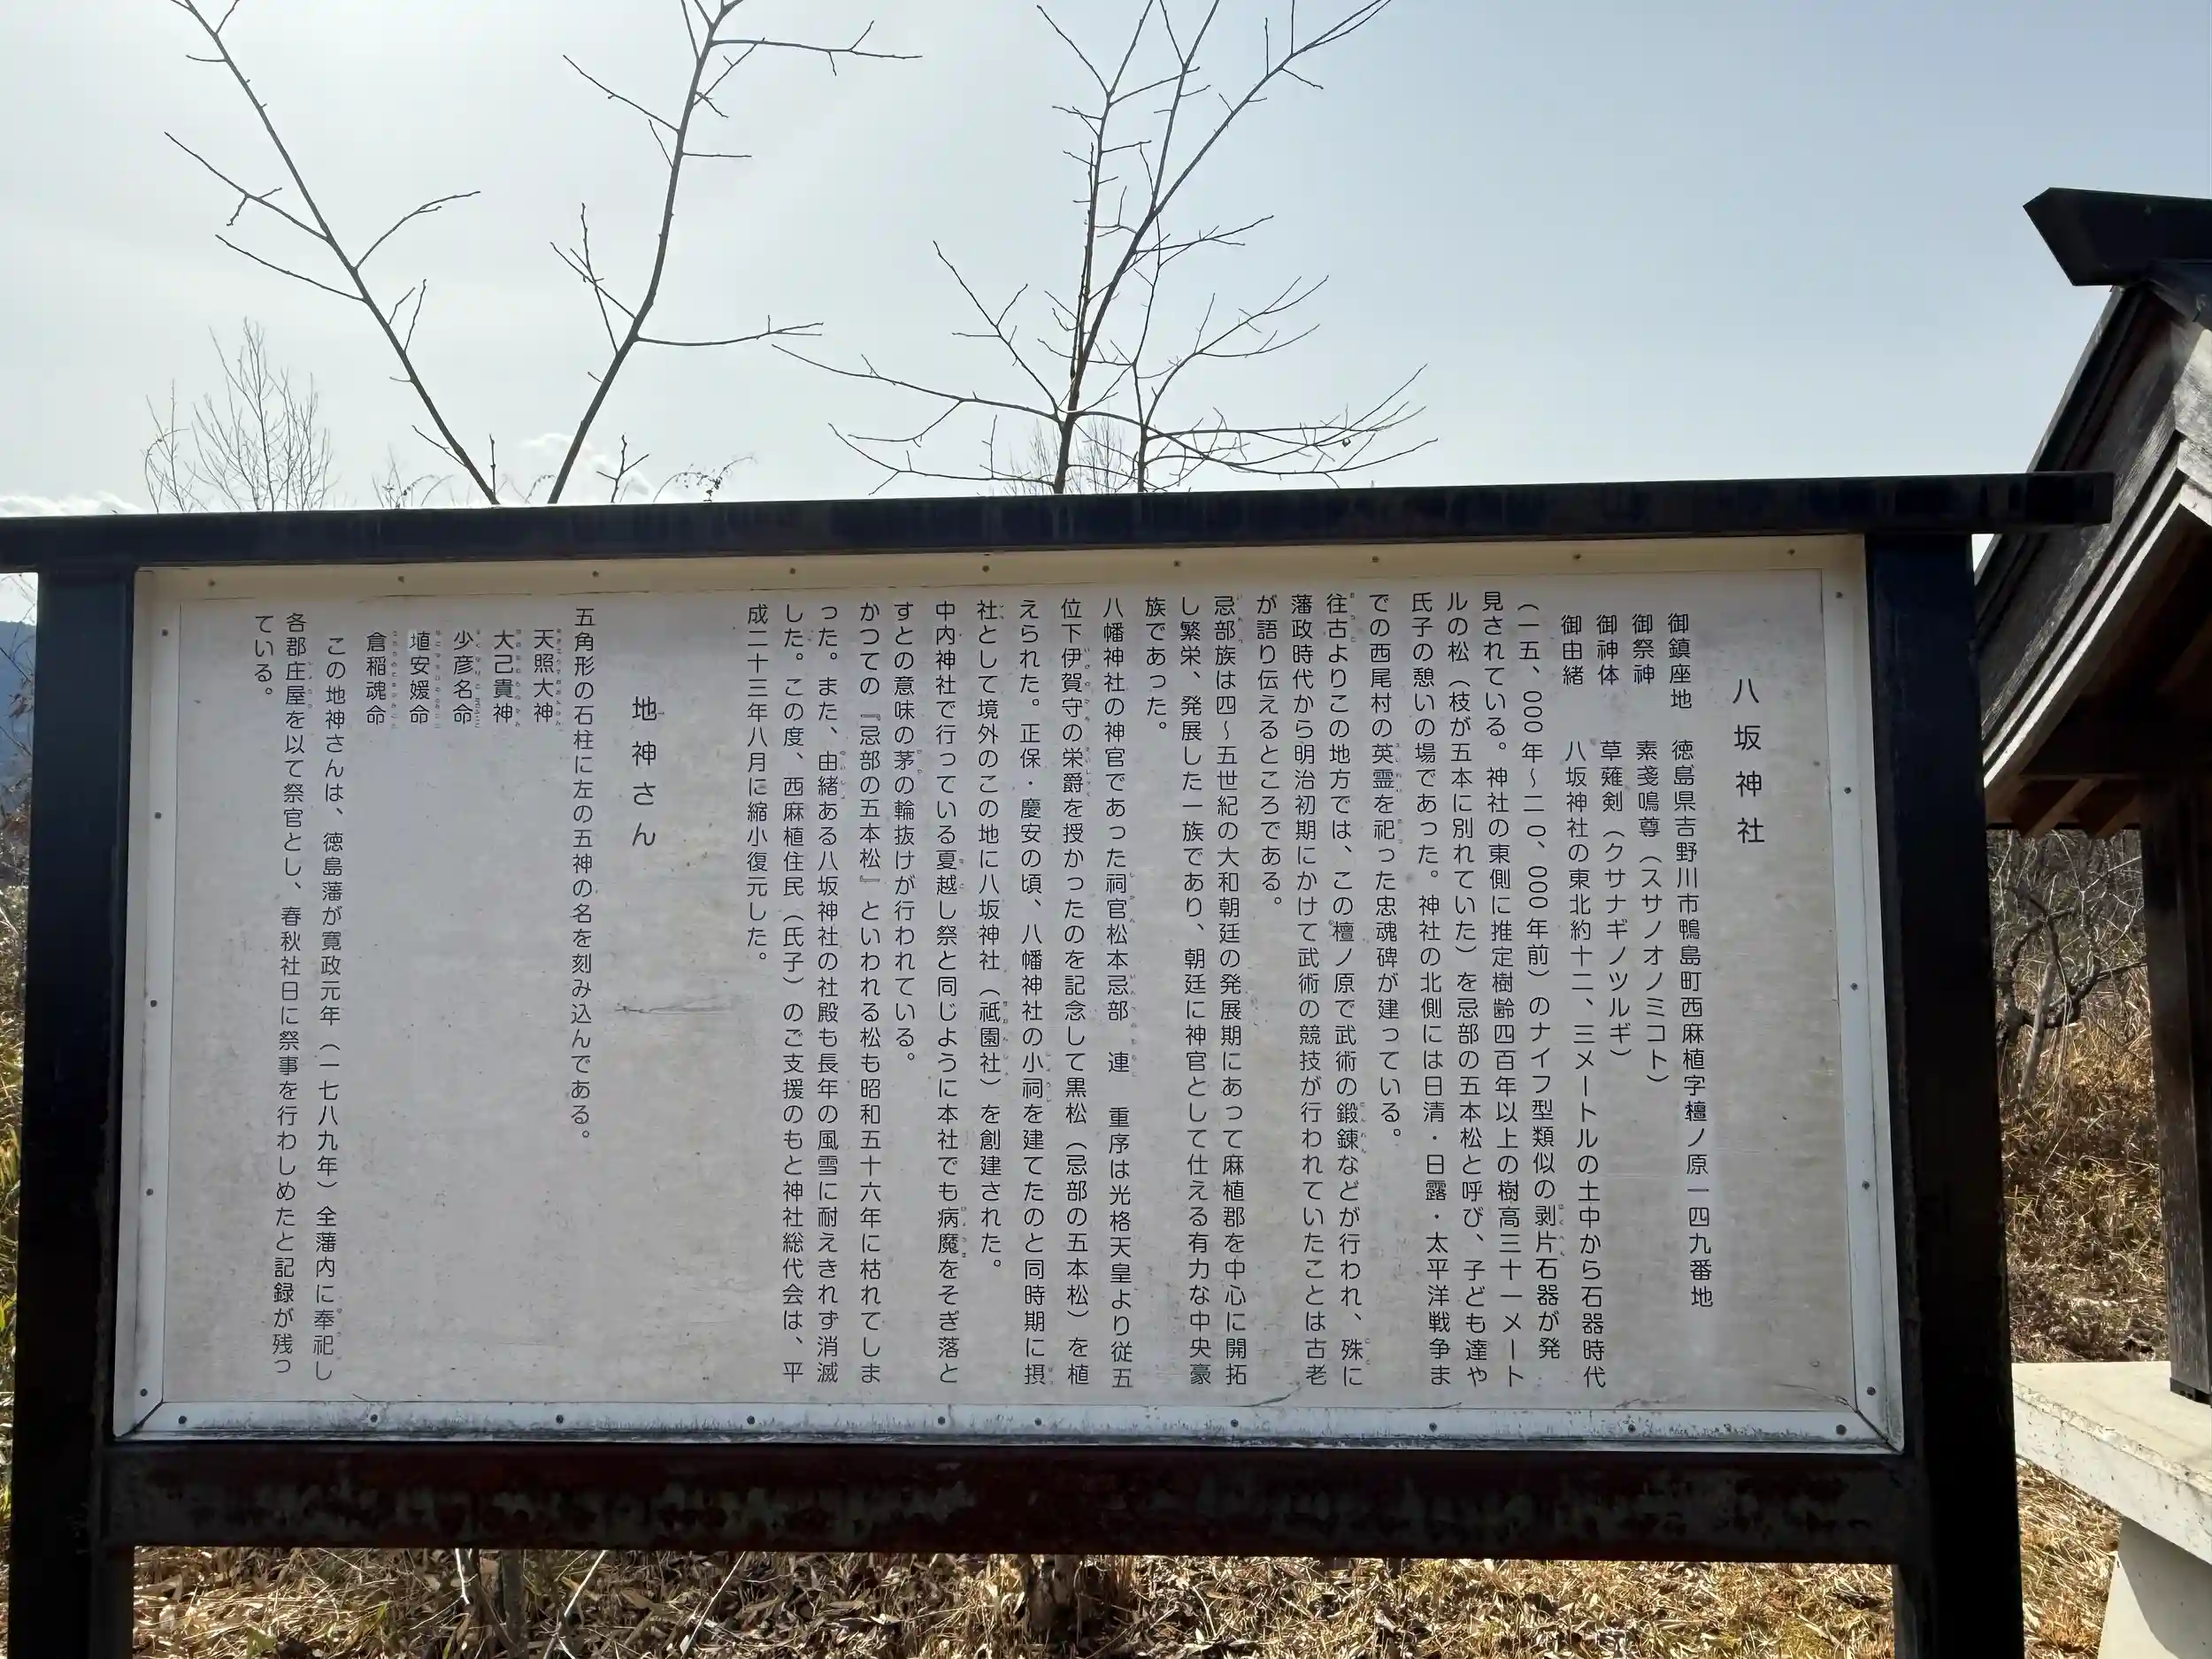 八坂神社
御鎮座地　徳島県吉野川市鴨島町西麻植字檀ノ原一四九番地
御祭神　素戔鳴尊（スサノオノミコト）
御神体　草薙剣（クサナギノツルギ）
御由緒　八坂神社の東北約十二、三メートルの土中から石器時代
（一五、000年～二0、000年前）のナイフ型類似の剥片石器が発
見されている。神社の東側に推定樹齢四百年以上の樹高三十一メート
ルの松（枝が五本に別れていた）を忌部の五本松と呼び、子ども達や
氏子の憩いの場であった。神社の北側には日清・日露・太平洋戦争ま
での西尾村の英霊を祀った忠魂碑が建っている。
往古よりこの地方では、この檀ノ原で武術の鍛錬などが行われ、殊に
藩政時代から明治初期にかけて武術の競技が行われていたことは古老
が語り伝えるところである。
忌部族は四～五世紀の大和朝廷の発展期にあって麻植郡を中心に開拓
し繁栄、発展した一族であり、朝廷に神官として仕える有力な中央豪
族であった。
八幡神社の神官であった祠官松本忌部　連　重序は光格天皇より従五
位下伊賀守の栄爵を授かったのを記念して黒松（忌部の五本松）を植
えられた。正保・慶安の頃、八幡神社の小祠を建てたのと同時期に摂
社として境外のこの地に八坂神社（祇園社）を創建された。
中内神社で行っている夏越し祭と同じように本社でも病魔をそぎ落と
すとの意味の茅の輪抜けが行われている。
かつての『忌部の五本松』といわれる松も昭和五十六年に枯れてしま
った。また、由緒ある八坂神社の社殿も長年の風雪に耐えきれず消滅
した。この度、西麻植住民（氏子）のご支援のもと神社総代会は、平
成二十三年八月に縮小復元した。
地神さん
五角形の石柱に左の五神の名を刻み込んである。
天照大神
大己貴神
少彦名命
埴安媛命
倉稲魂命
この地神さんは、徳島藩が寛政元年（一七八九年）全藩内に奉祀し
各郡庄屋を以て祭官とし、春秋社日に祭事を行わしめたと記録が残っ
ている。